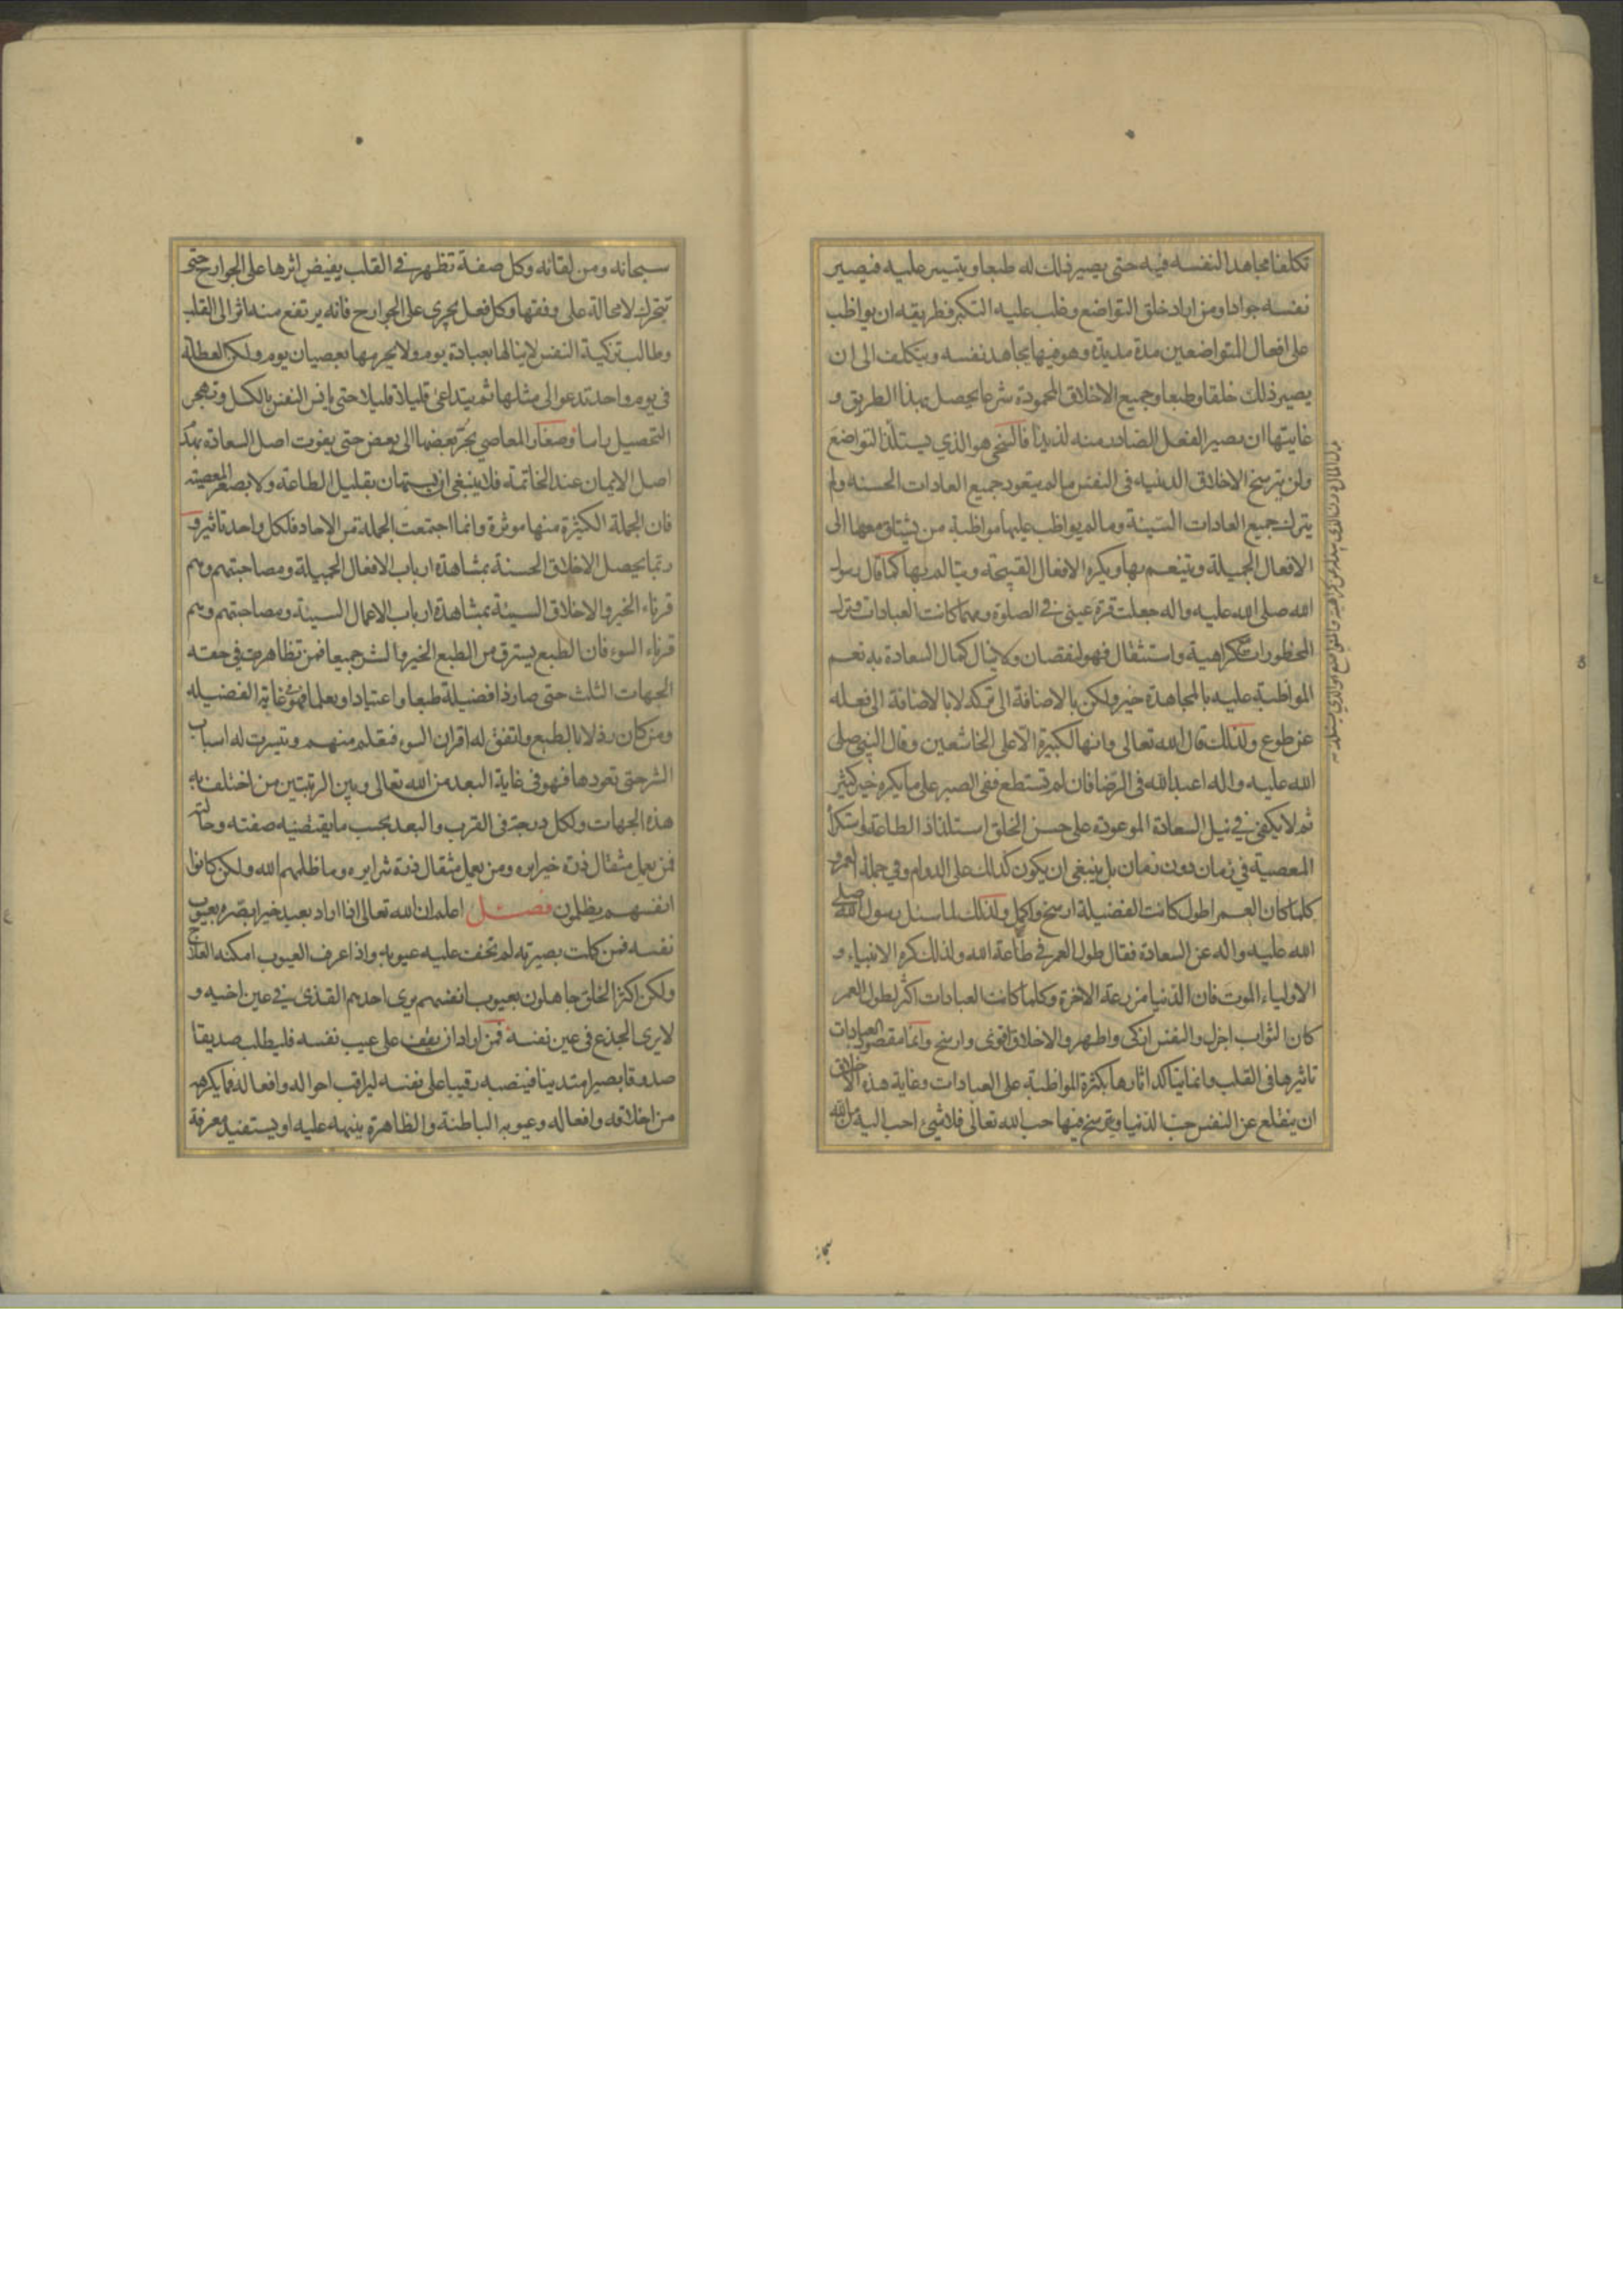 تكلفا مجاهدا لنفسه فيه حتى يصير ذلك له طبعا ويتيسر عليه فيصير
نفسه جوادا ومن اراد خلق التواضع وغلب عليه التكبر فطريقه ان يواظب
على افعال المتواضعين مدة مديدة وهو فيها يجاهد نفسه ويتكلف الى ان
يصير ذلك خلقا وطبعا وجميع الاخلاق المحمودة شرعا يحصل بهذا الطريق و
غايتها ان يصير الفعل الصادر منه لذيذا فالسخى هو الذي يستلذ
التواضع
ولن يترسخ الاخلاق الدينيه فى النفس ما لم يتعود جميع العادات الحسنه ولم
يترك جميع العادات السيئة وما لم يواظب عليها مواظبة من يشتاق معها الى
الافعال الجميلة ويتنعم بها ويكره الافعال القبيحة ويتالم بها كما قال رسول
الله صلى الله عليه واله جعلت قرة عينى في الصلوة ومهما كانت العبادات وترك
المحظورات مع كراهية واستثقال فهو لنقصان ولا ينال كمال السعادة به نعم
المواظبة عليه بالمجاهدة خير ولكن بالاضافة الى تركه لا بالاضافة الى فعله
عن طوع ولذلك قال الله تعالى وانها لكبيرة الا على الخاشعين وقال النبي صلى
الله عليه واله اعبد الله فى الرضا فان لم تستطع ففى الصبر على ما يكره خير كثير
ثم لا يكفى في نيل السعادة الموعودة على حسن الخلق استلذاذ الطاعة واستكراه
المعصية في زمان دون زمان بل ينبغى ان يكون كذلك على الدوام وفي جملة العمر و
كلما كان العمر اطول كانت الفضيلة ارسخ واكمل ولذلك لما سئل رسول الله صلى
الله عليه واله عن السعادة فقال طول العمر في طاعة الله ولذلك كره الانبياء و
الاولياء الموت فان الدنيا مزرعة الاخرة وكلما كانت العبادات اكثر لطول العمر
كان الثواب اجزل والنفس ازكى واطهر والاخلاق اقوى وارسخ وانما مقصود العبادات
تاثيرها فى القلب وانما يتاكد اثارها بكثرة المواظبة على العبادات وغاية هذه الاخلاق
ان ينقلع عن النفس حب الدنيا ويترسخ فيها حب الله تعالى فلا شيئ احب اليه من الله
سبحانه ومن لقائه وكل صفة تظهر في القلب يفيض اثرها على الجوارح حتى
تتحرك لا محالة على وفقها وكل فعل يجرى على الجوارح فانه يرتفع منه اثر الى القلب
وطالب تزكية النفس لا ينالها بعبادة يوم ولا يحرمها بعصيان يوم ولكن العطلة
فى يوم واحد تدعو الى مثلها ثم يتداعى قليلا قليلا حتى يانس النفس بالكسل وتهجر
التحصيل راسا وصغار المعاصي يجر بعضها الى بعض حتى يفوت اصل السعادة بهدم
اصل الايمان عند الخاتمة فلا ينبغى ان يستهان بقليل الطاعة ولا بصغر المعصية
فان الجملة الكثيرة منها موثرة وانما اجتمعت الجملة من الاحاد فلكل واحد تاثير و
ربما يحصل الاخلاق الحسنة بمشاهدة ارباب الافعال الجميلة ومصاحبتهم وهم
قرناء الخير والاخلاق السيئة بمشاهدة ارباب الاعمال السيئة ومصاحبتهم وهم
قرناء السوء فان الطبع يسترق من الطبع الخير والشر جميعا فمن تظاهرت في حقه
الجهات الثلث حتى صار ذا فضيلة طبعا واعتيادا وتعلما فهو في غاية الفضيله
ومن كان رذلا بالطبع واتفق له اقران السوء فتعلم منهم وتيسرت له اسباب
الشر حتى تعودها فهو فى غاية البعد من الله تعالى وبين الرتبتين من اختلف به
هذه الجهات ولكل درجة فى القرب والبعد بحسب ما يقتضيه صفته وحالته
فمن يعمل مثقال ذرة خيرا يره ومن يعمل مثقال ذرة شرا يره وما ظلمهم الله ولكن كانوا
انفسهم يظلمون فصل اعلم ان الله تعالى اذا اراد بعبد خيرا بصره بعيوب
نفسه فمن كملت بصيرته لم تخف عليه عيوبه واذا عرف العيوب امكنه العلاج
ولكن اكثر الخلق جاهلون بعيوب انفسهم يرى احدهم القذى في عين اخيه و
لا يرى الجذع فى عين نفسه فمن اراد ان يقف على عيب نفسه فليطلب صديقا
صدوقا بصيرا متدينا فينصبه رقيبا على نفسه ليراقب احواله وافعاله فما يكرهه
من اخلاقه وافعاله وعيوبه الباطنة والظاهرة ينبهه عليه او يستفيد معرفة